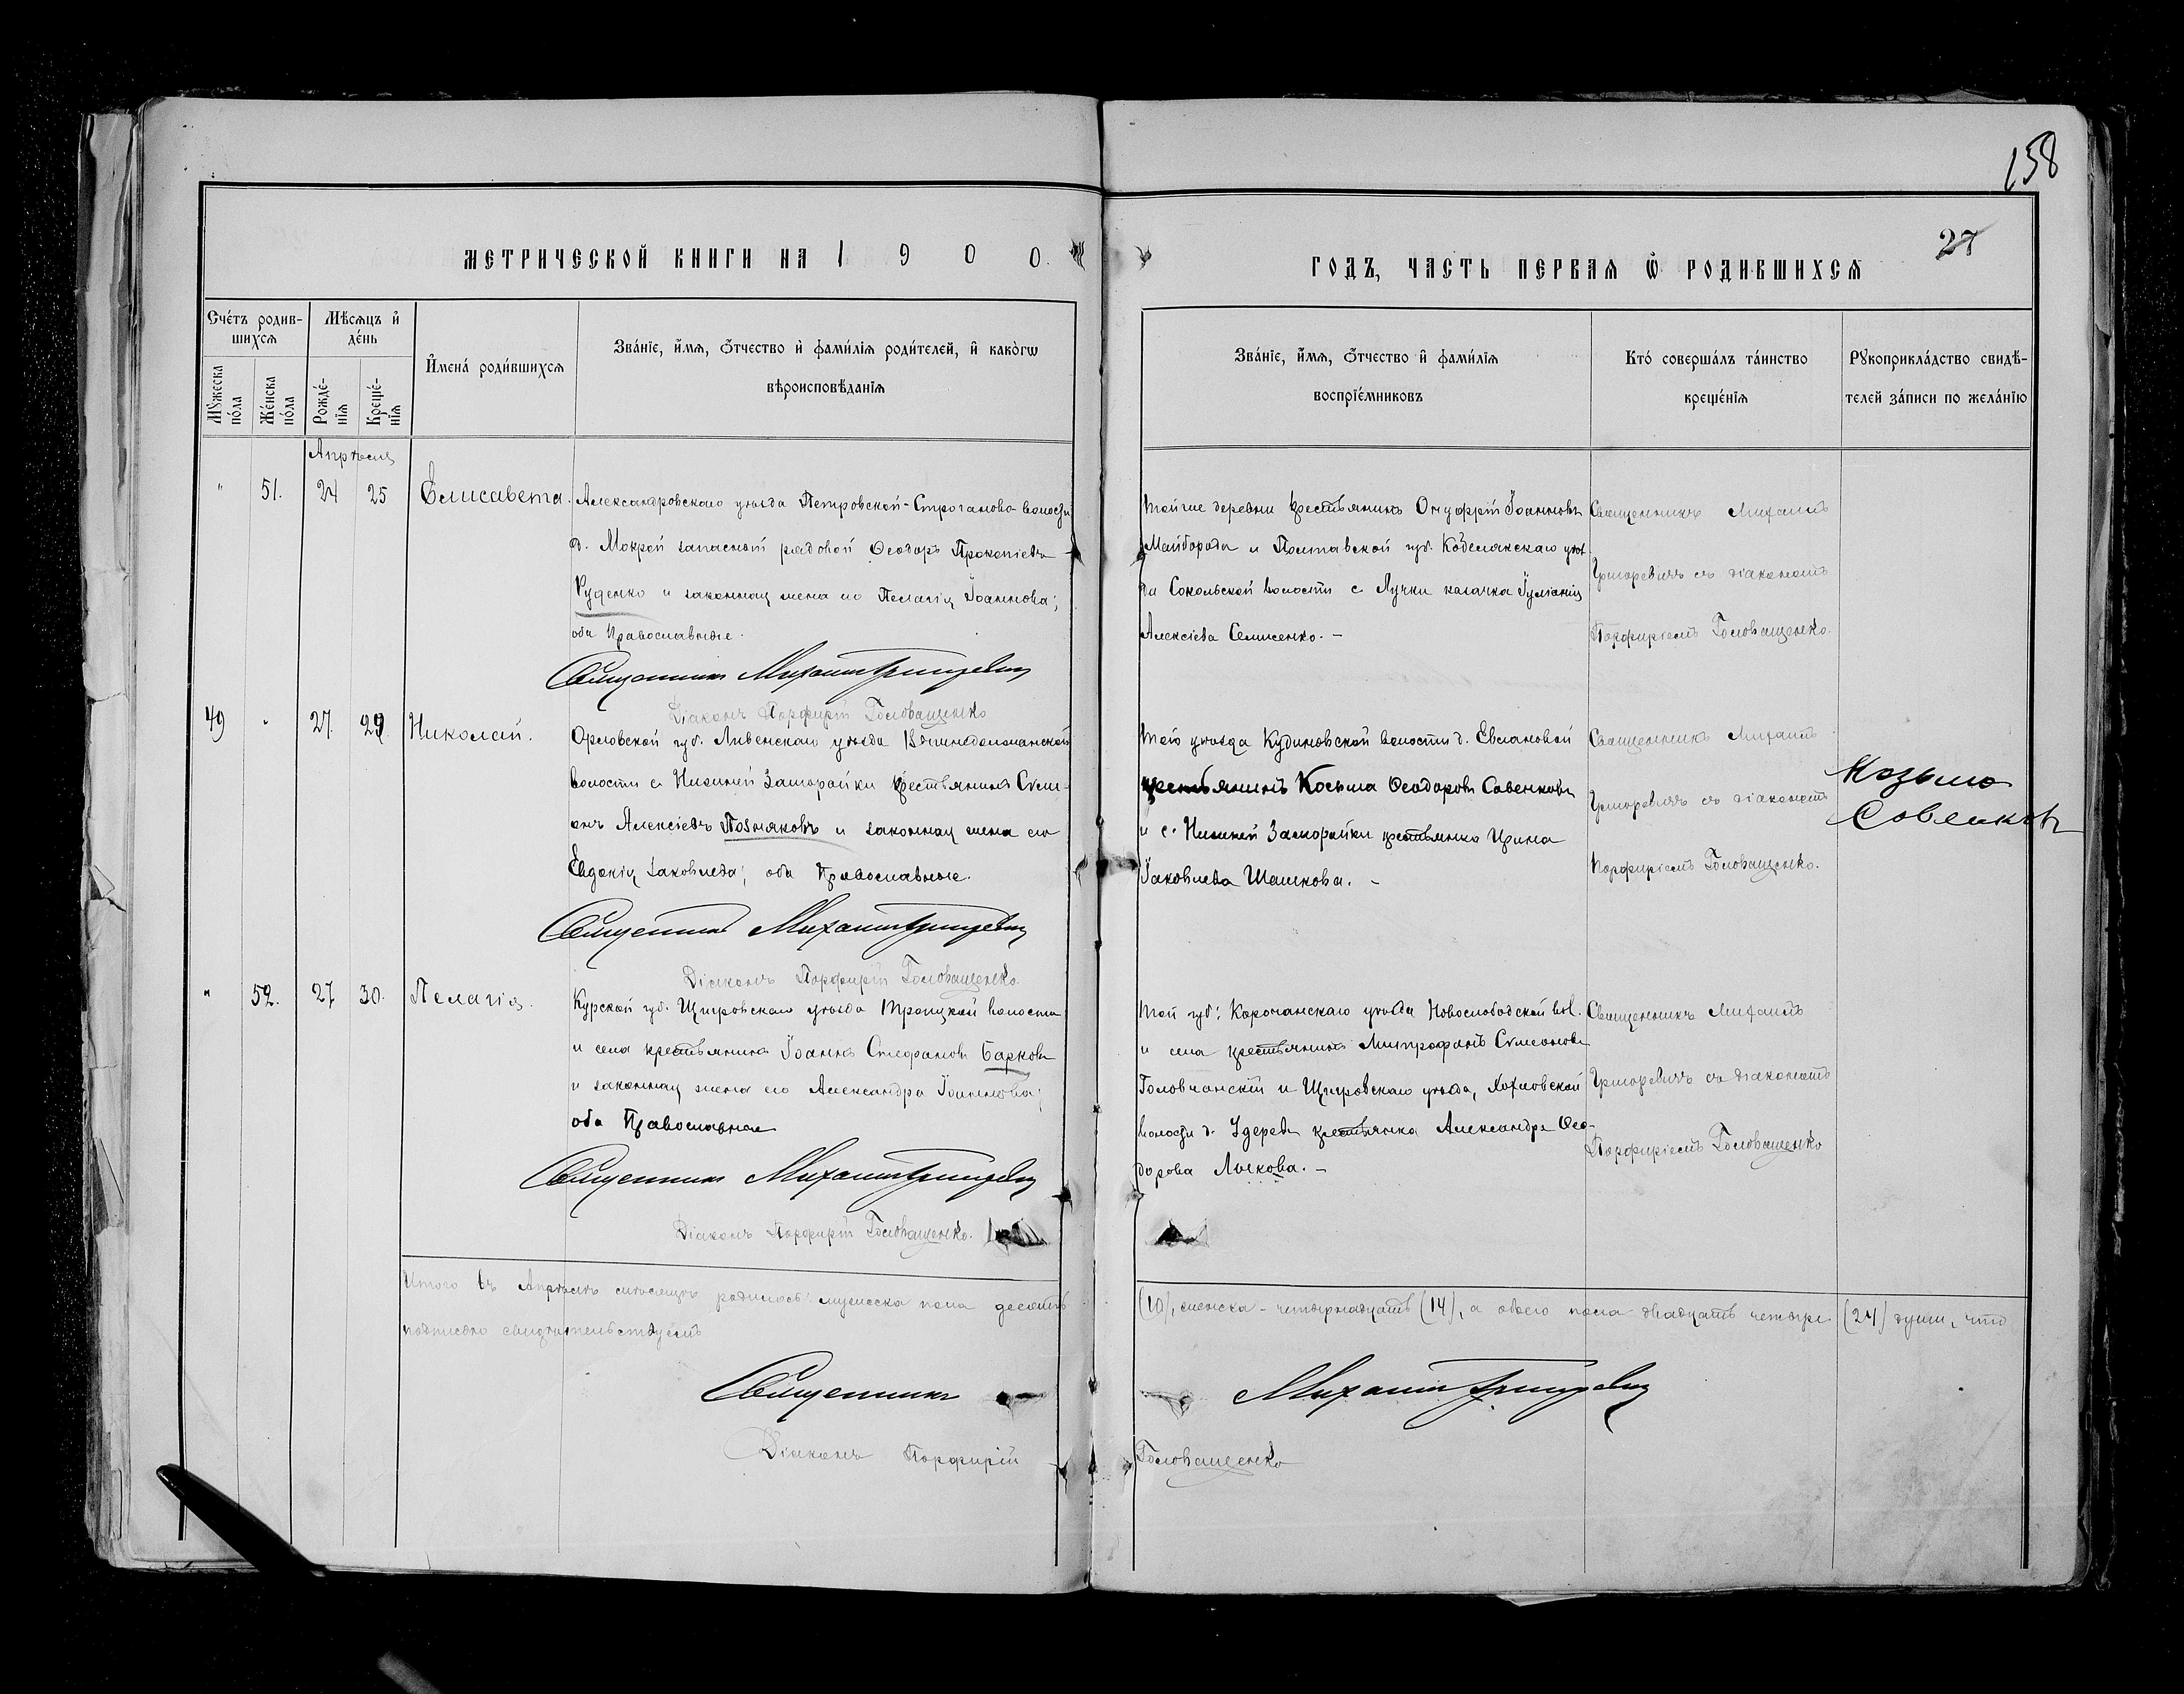 158
27
МЕТРИЧЕСКОЙ КНИГИ НА 1900.
ГОДЪ, ЧАСТЬ ПЕРВАЯ Ѡ РОДИВШИХСЯ
Сче́тъ родив-
шихсѧ
Мѣсѧцъ и҆
де́нь
Мꙋжеска
по́ла
Же́нска
по́ла
Рожде́-
нїѧ
Креще́-
нїѧ
И҆мена̀ роди́вшихсѧ
Зва́нїе, и҆́мѧ, ѻ҆́тчество и҆ фами́лїѧ роди́телей, и҆ како́гѡ
вѣроисповѣ́данїѧ
Зва́нїе, и҆́мѧ, ѻ҆́тчество и҆ фами́лїѧ
воспрїе́мниковъ
Кто̀ соверша́лъ та́инство
креще́нїѧ
Рꙋкоприкла́дство свидѣ́-
телей за́писи по жела́нїю
Апрѣля
" 51. 24 25 Елисавета.
Александровскаго уѣзда Петровской-Строганово-волости
д. Мокрой запасный рядовой Ѳеодоръ Прокопіевъ
Руденко и законная жена его Пелагія Іоаннова;
оба Православные.
Священникъ Михаилъ Григоревичъ
Діаконъ Порфирій Головащенко
Тойже деревни крестьянинъ Онуфрій Іоанновъ
Майборода и Полтавской губ. Кобелякскаго уѣз
да Сокольской волости с. Лучки казачка Іуліанія
Алексіева Семисенко. –
Священникъ Михаилъ
Григоревичъ съ діакономъ
Порфиріемъ Головащенко.
49 " 27. 29 Николай.
Орловской губ. Ливенскаго уѣзда
волости с. Нижней Заморойки крестьянинъ Симе-
онъ Алексіевъ Позняковъ и законная жена его
Евдокія Іаковлева; оба Православные.
Священникъ Михаилъ Григоревичъ
Діаконъ Порфирій Головащенко.
Того уѣзда Кудиновской волости д. Евлановой
крестьянинъ Косьма Ѳеодоровъ Совенковъ
и с. Нижней Заморойки крестьянка Ирина
Іаковлева Шашкова. –
Священникъ Михаилъ
Григоревичъ съ діакономъ
Порфиріемъ Головащенко.
Козьмо
Совенковъ
" 52. 27 30. Пелагія.
Курской губ. Щигровскаго уѣзда Троицкой волости
и села крестьянинъ Іоаннъ Стефановъ Барковъ
и законная жена его Александра Іоаннова;
оба Православные
Священникъ Михаилъ Григоревичъ
Діаконъ Порфирій Головащенко.
Той губ. Корочанскаго уѣзда Новослободской вол.
и села крестьянинъ Митрофанъ Симеоновъ
Головчанскій и Щигровскаго уѣзда, Хохловской
волости д. Удерева крестьянка Александра Ѳео-
дорова Лыкова. –
Священникъ Михаилъ
Григоревичъ съ діакономъ
Порфиріемъ Головащенко
Итого въ Апрѣлѣ мѣсяцѣ родилось: мужеска пола десять (10), женска - четырнадцать (14), а обоего пола двадцать четыре (24) души, что
подписью свидѣтельствуемъ
Священникъ Михаилъ Григоревичъ
Діаконъ Порфирій Головащенко